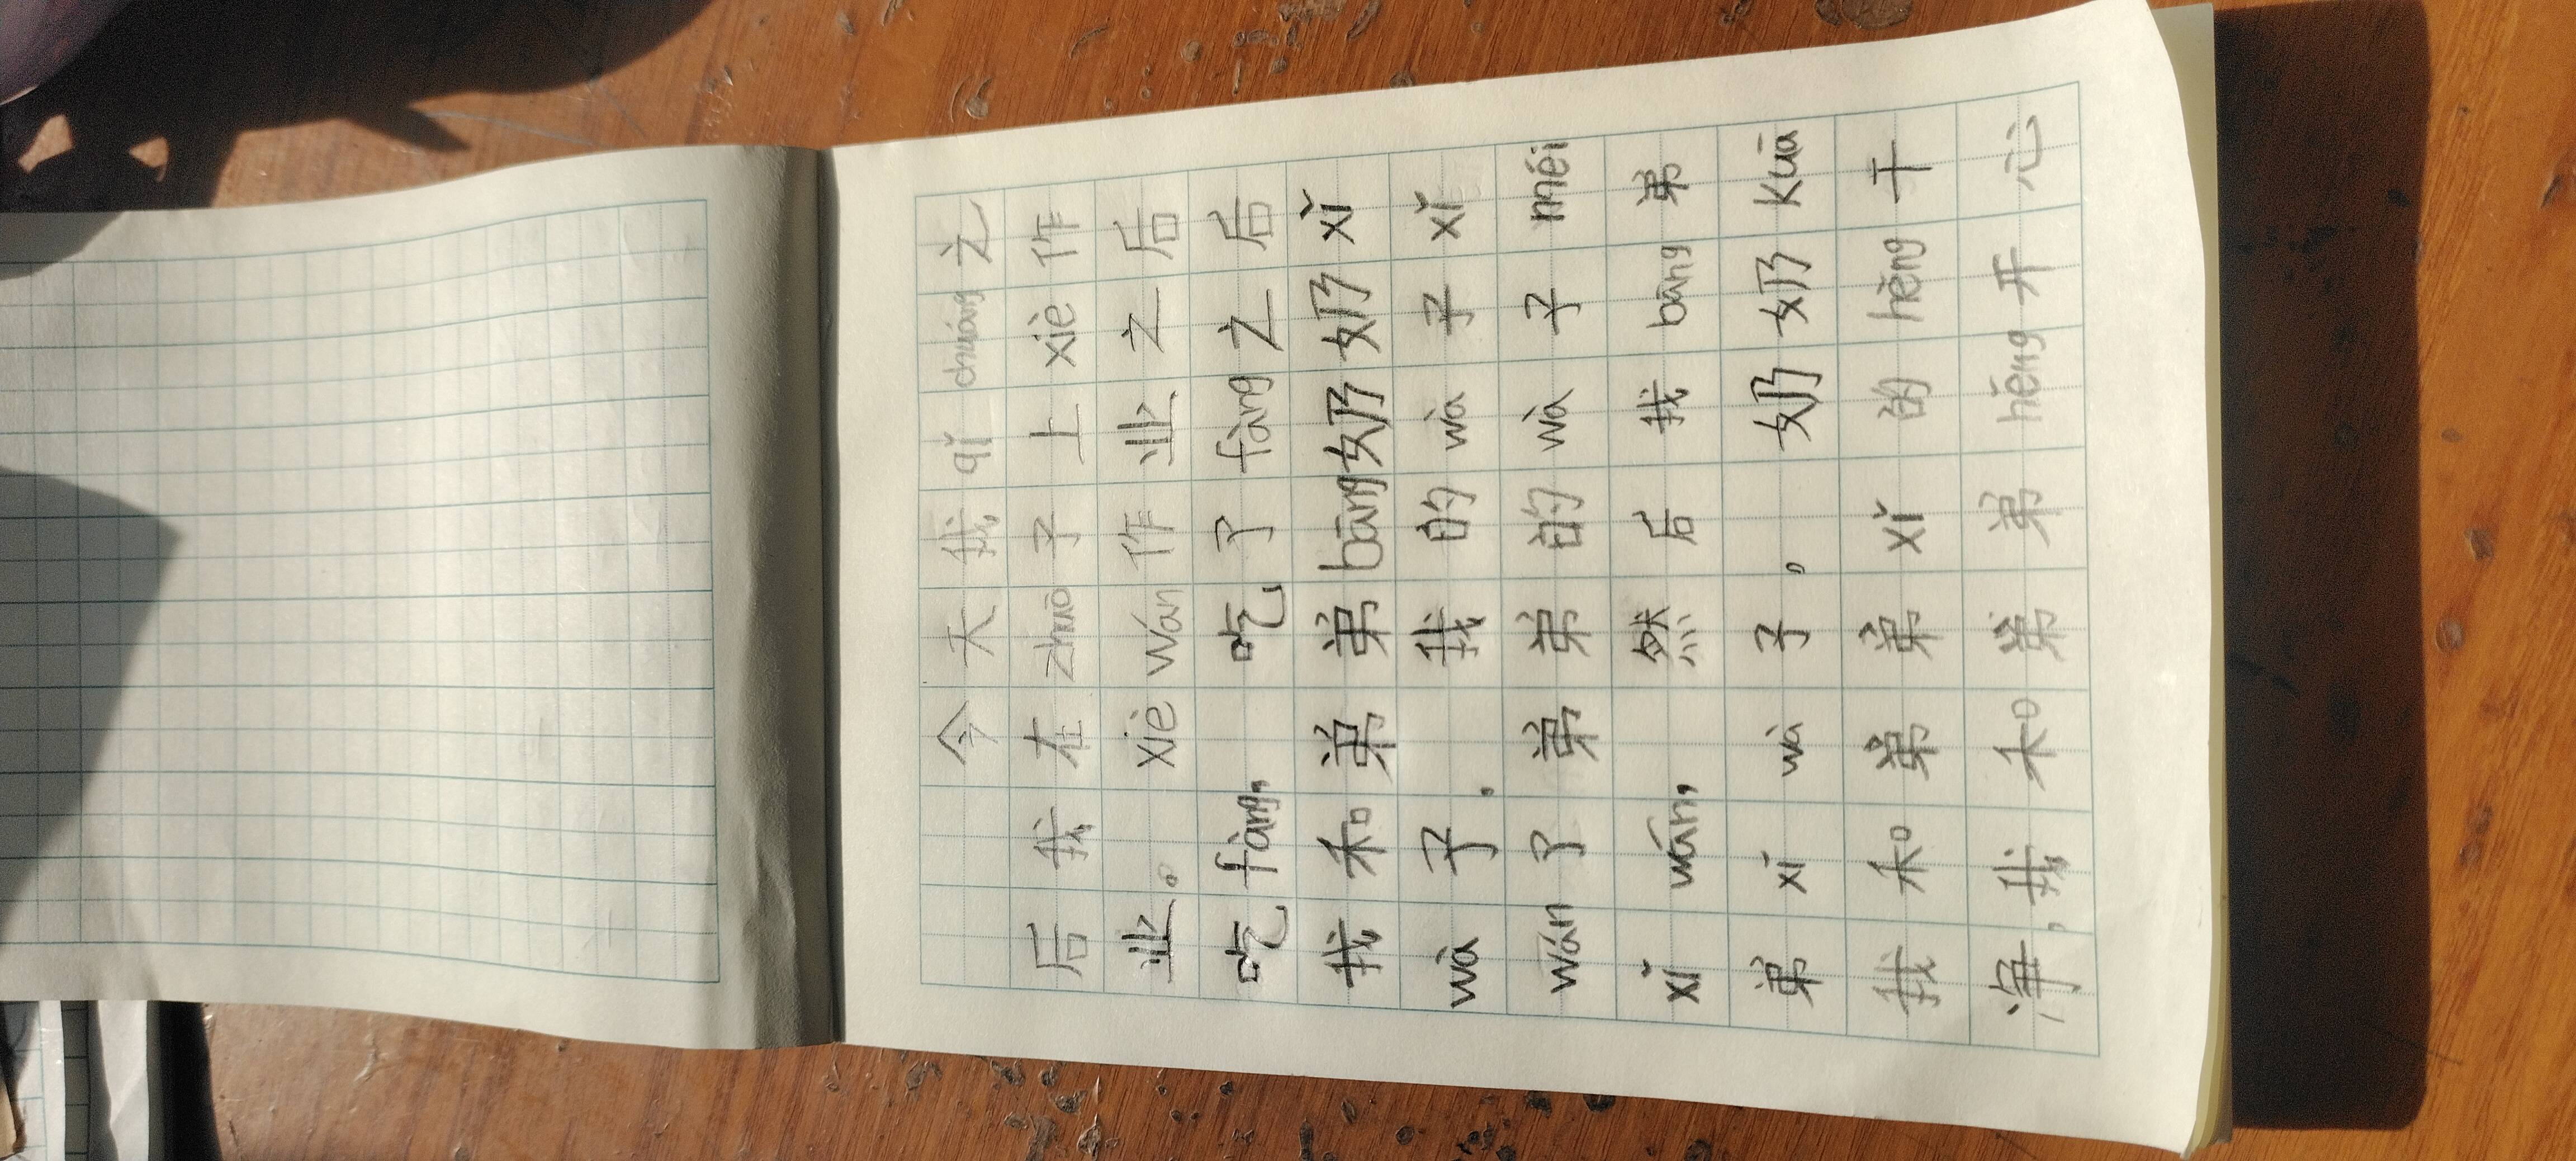 今天我qǐ chuáng之
后我在zhuō子上xiè作
业。xiè wán作业之后
吃fàng,吃了fàng之后
我和弟弟bāng奶奶xǐ
wà子.我的wà子xǐ
wán了弟弟的wà子méi
xǐ wán,然后我bāng弟
弟xǐ wà子。奶奶kuā
我和弟弟xǐ的hěng干
净,我和弟弟hěng开心